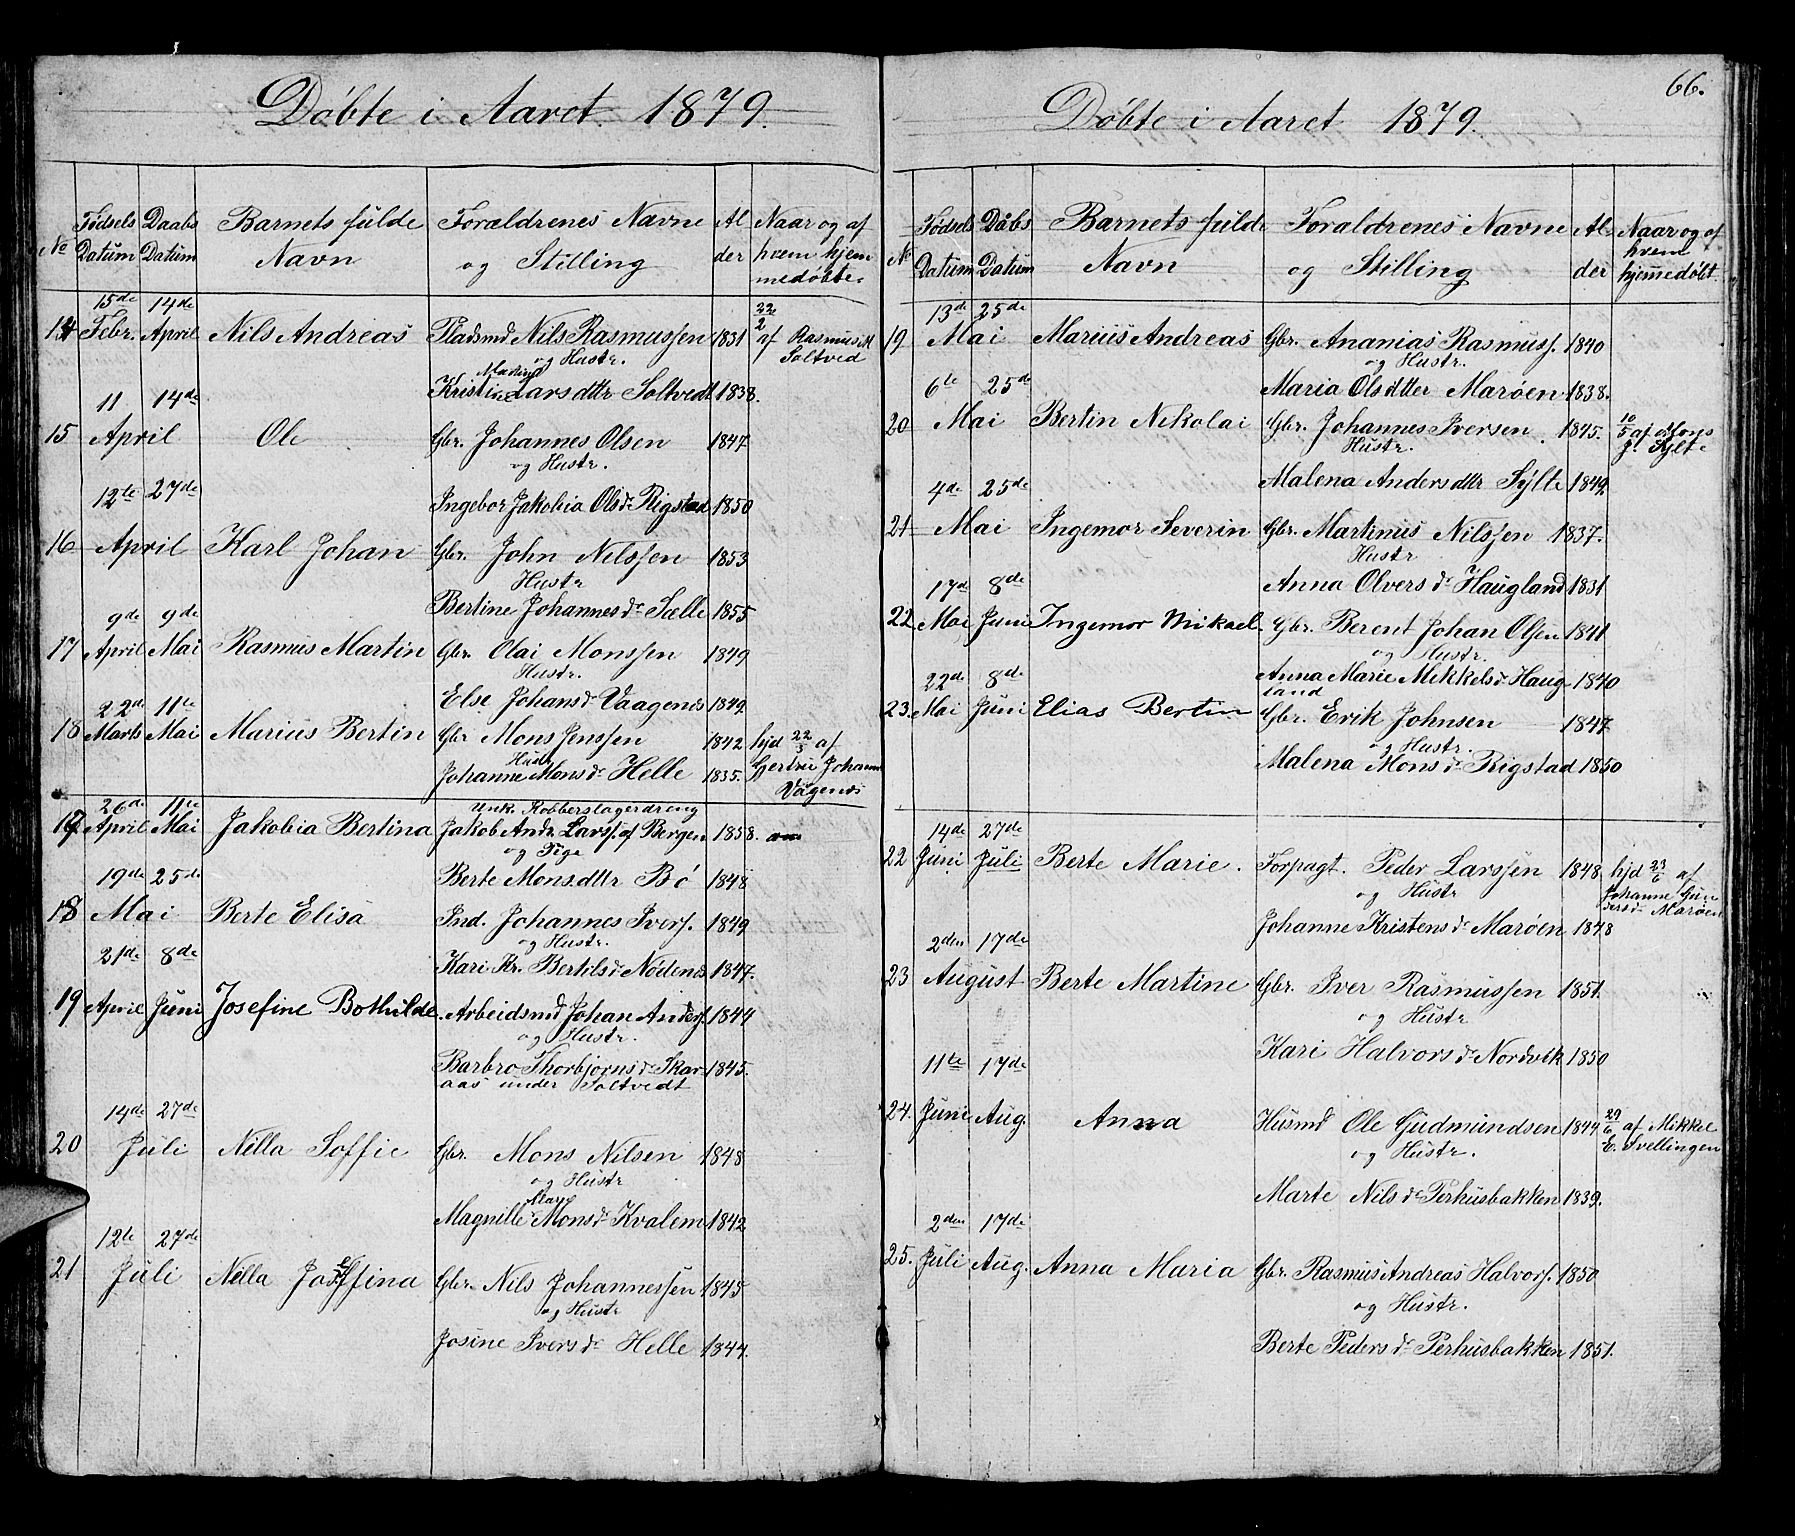 Döbte i Aaret 1879.
No
Födsels Datum
Daabs Datum
Barnets fulde Navn
Forældrenes Navne og Stilling
Al der
Naar og af hvem hjem medöbte.
15de 14de
14 Febr. April Nils Andreas Pladsmd Nils Rasmussen 1831 22/2 af Rasmus M Soltved
og Hustr.
Kristine Larsdttr Soltvedt 1838.
11 14de
15 April Ole Gbr. Johannes Olsen 1847
og Hustr.
Ingebor Jakobia Olsdr Rigstad 1850
12te 27de
16 April Karl Johan Gbr. John Nilssen 1853
Hustr
Bertine Johannesdr Sælle 1855
9de 9de
17 April Mai Rasmus Martin Gbr. Olai Monssen 1849
Hustr.
Else Johansdr Vaagenes 1849
22de 11te
18 Marts Mai Marius Bertin Gbr Mons Jenssen 1842 hjd 22/3 af
Hustr
Johanne Monsdr Helle 1835. Gertrie Johann Vågenes
26de 11te Unk. Kobberslagerdreng
17 April Mai Jakobia Bertina Jakob Andr. Larss. af Bergen 1858.
og Pige
Berte Monsdttr Bö 1848
19de 25de
18 Mai Berte Elisa Ind. Johannes Ivers. 1849
og Hustr.
Kari Kr. Bertilsdr Nödenes 1847.
21de 8de
19 April Juni Josefine Bothilde Arbeidsmd Johan Anders. 1844
og Hustr.
Barbro Thorbjörnsdr Skar- 1845.
aas under Soltvedt
14de 27de
20 Juli Nella Soffie Gbr. Mons Nilsen 1848
og Hustr
Magnille Monsdr Kvalem 1842
12te 27de
21 Juli Nella Josefina Gbr. Nils Johannessen 1845
og Hustr
Josine Iversdr Helle 1844.
66.
Döbte i Aaret 1879.
No
Födsels Datum
Dåbs Datum
Barnets fulde Navn
Forældrenes Navne og Stilling
Al der
Naar og af hvem hjemmedöbt.
13de 25de
19 Mai Marius Andreas Gbr. Ananias Rasmuss. 1840
og Hustr.
Maria Olsdtter Maröen 1838.
6te 25de
20 Mai Bertin Nikolai Gbr. Johannes Iversen 1845. 10/5 af Mons J. Sylte
Hustr.
Malena Andersdttr Sylte 1849
4de 25de
21 Mai Ingemor Severin Gbr. Martinus Nilssen 1837.
Hustr
Anna Olversdr Haugland 1831
17de 8de
22 Mai Juni Ingemor Mikael Gbr. Berent Johan Olsen 1841
og Hustr.
Anna Marie Mikkelsdr Haug- 1840
land
22de 8de
23. Mai Juni Elias Bertin Gbr. Erik Johnsen 1847
og Hustr.
Malena Monsdr Rigstad 1850
14de 27de
22 Juni Juli Berte Marie. Forpagt. Peder Larssen 1848 hjd 23/6 af
og Hustr Johanne Gun dersdr Maröen
Johanne Kristensdr Maröen 1848
2den 17de
23 August Berte Martine Gbr. Iver Rasmussen 1851.
og Hustr
Kari Halvorsdr Nordvik 1850
11te 17de
24. Juni Aug. Anna Husmd Ole Gudmundsen 1844 29/6 af Mikkel E. Svellingen
og Hustr.
Marte Nilsdr Perhusbakken 1839.
2den 17de
25. Juli Aug. Anna Maria Gbr. Rasmus Andreas Halvors. 1850
og Hustr.
Berte Pedersdr Perhusbakken 1851.